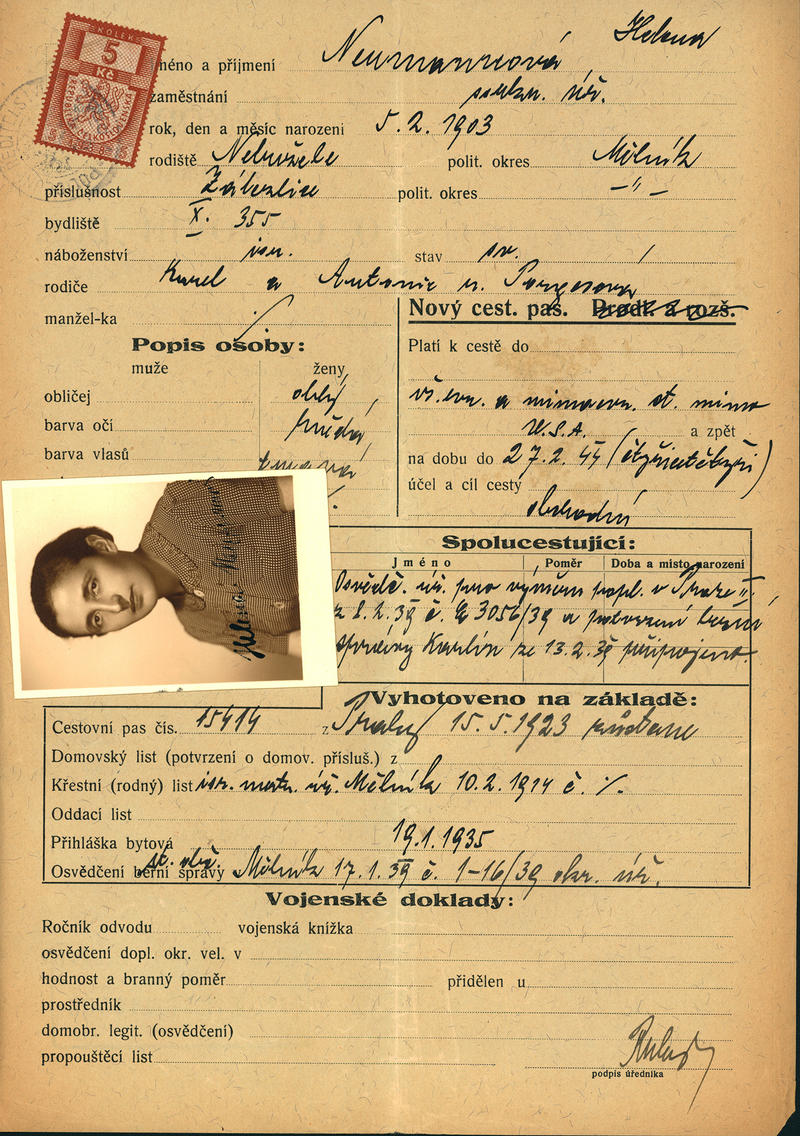 KOLEK
5
Kč
Jméno a příjmení Neumannová Helena
zaměstnání soukr. úř.
rok, den a měsíc narození 5. 2. 1903
rodiště Nebužele polit. okres Mělník
příslušnost polit. okres –"–
bydliště X. 355
náboženství isr. stav sv.
rodiče Karel a Antonie r. Porgesova
manžel-ka
Nový cest. pas. Prodl. a rozš.
Popis osoby:
Platí k cestě do
muže ženy
obličej oblý
vš. evr. a mimoevr. st. mimo
barva očí hnědá
U.S.A. a zpět
barva vlasů tmavá
na dobu do 27. 2. 44 (čtyřicetčtyři)
účel a cíl cesty
obchodní
Helena
Spolucestující:
Jméno Poměr Doba a místo narození
Osvědč. úř. pro výměnu popl. v Praze II.
z 8. 2. 39 č. 3056/39 a potvrzení berní
správy Karlín ze 13. 2. 39 připojeno.
Vyhotoveno na základě:
Cestovní pas čís. 15414 z Prahy 15. 5. 1923
Domovský list (potvrzení o domov. přísluš.) z
Křestní (rodný) list isr. matr. úř. Mělník 10. 2. 1914 č. %.
Oddací list
Přihláška bytová 19. 1. 1935
st. obč.
Osvědčení berní správy Mělník 17. 1. 39 č. 1-16/39 okr. úř.
Vojenské doklady:
Ročník odvodu vojenská knížka
osvědčení dopl. okr. vel. v
hodnost a branný poměr přidělen u
prostředník
domobr. legit. (osvědčení)
propouštěcí list
podpis úředníka